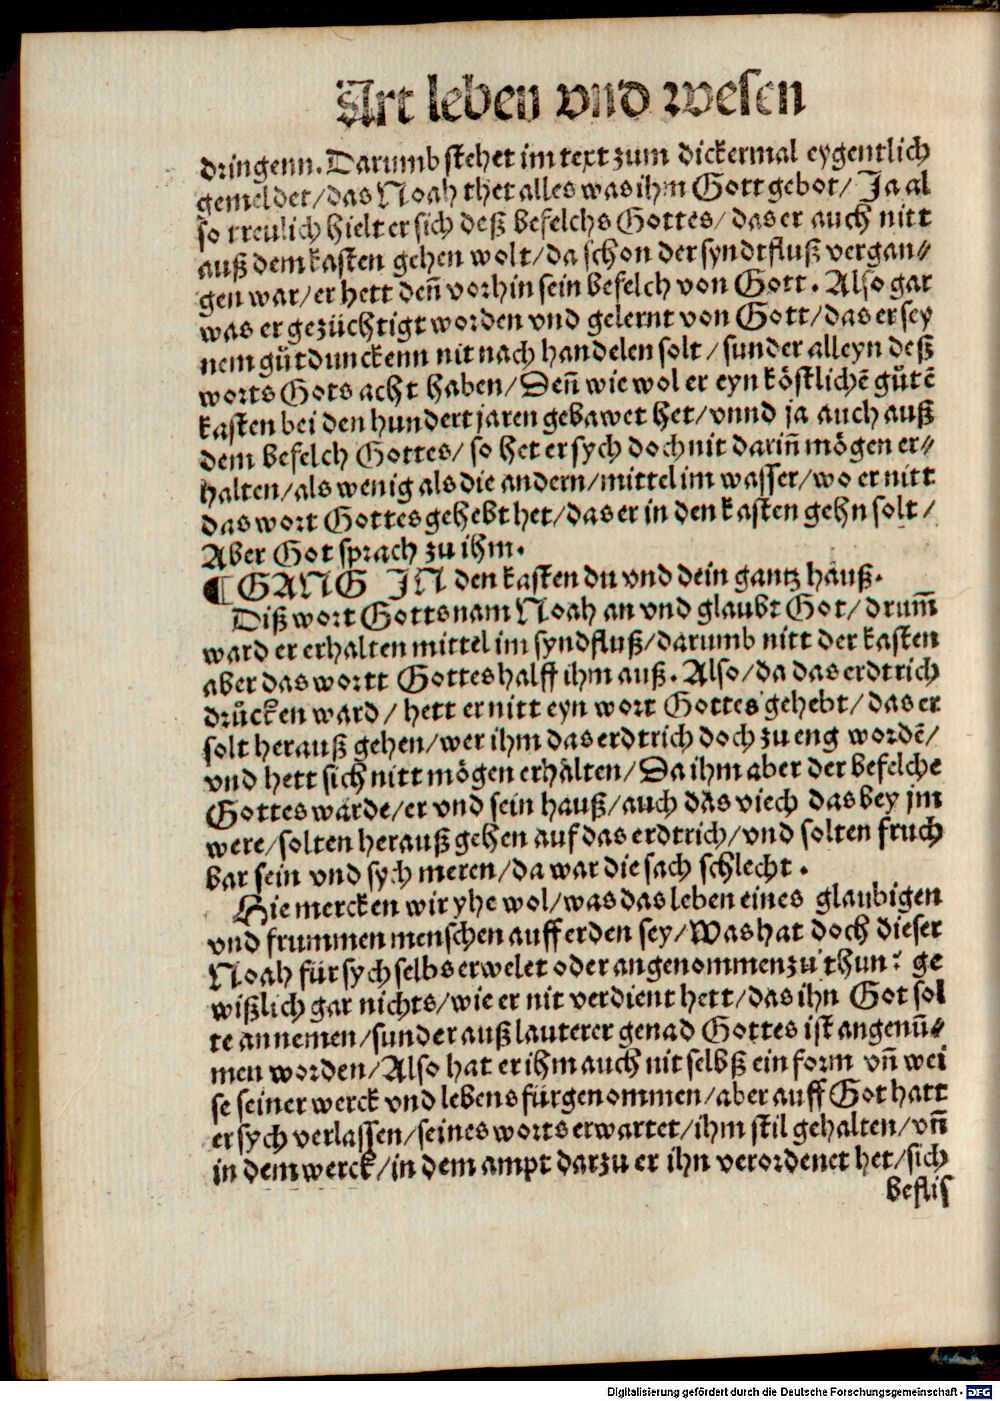 Art leben vnd wesen
dringenn. Darumb stehet im text zum dickermal eygentlich
gemeldet/das Noah thet alles was ihm Gott gebot/ Ja al
so treulich hielt er sich deß befelchs Gottes/ das er auch nitt
auß dem kasten gehen wolt/da schon der syndtfluß vergan⸗
gen war/er hett deñ vorhin sein befelch von Gott. Also gar
was er gezüchtigt worden vnd gelernt von Gott/das er sey
nem gůtdunckenn nit nach handelen solt/sunder alleyn deß
worts Gots acht haben/Deñ wie wol er eyn köstlichẽ gůtẽ
kasten bei den hundert jaren gebawet het/vnnd ja auch auß
dem befelch Gottes/ so het er sych doch nit dariñ mögen er⸗
halten/als wenig als die andern/mittel im wasser/wo er nitt
das wort Gottes gehebt het/das er in den kasten gehn solt/
Aber Got sprach zu ihm.
¶ GANG IN den kasten du vnd dein gantz hauß.
Diß wort Gotts nam Noah an vnd glaubt Got/drum̃
ward er erhalten mittel im syndfluß/darumb nitt der kasten
aber das wortt Gottes halff ihm auß. Also/da das erdtrich
drůcken ward/ hett er nitt eyn wort Gottes gehebt/das er
solt herauß gehen/wer ihm das erdtrich doch zu eng wordẽ/
vnd hett sich nitt mögen erhalten/Da ihm aber der befelche
Gottes warde/er vnd sein hauß/auch das viech das bey jm
were/solten herauß gehen auf das erdtrich/vnd solten fruch
bar sein vnd sych meren/da war die sach schlecht.
Hie mercken wir yhe wol/was das leben eines glaubigen
vnd frummen menschen auff erden sey/Was hat doch dieser
Noah für sych selbs erwelet oder angenommen zu thun? ge
wißlich gar nichts/wie er nit verdient hett/das ihn Got sol
te annemen/sunder auß lauterer genad Gottes ist angenũ⸗
men worden/Also hat er ihm auch nit selbß ein form vñ wei
se seiner werck vnd lebens fürgenommen/aber auff Got hatt
er sych verlassen/seines worts erwartet/ihm stil gehalten/vñ
in dem werck/in dem ampt darzu er ihn verordenet het/sich
beflis
Digitalisierung gefördert durch die Deutsche Forschungsgemeinschaft - DFG